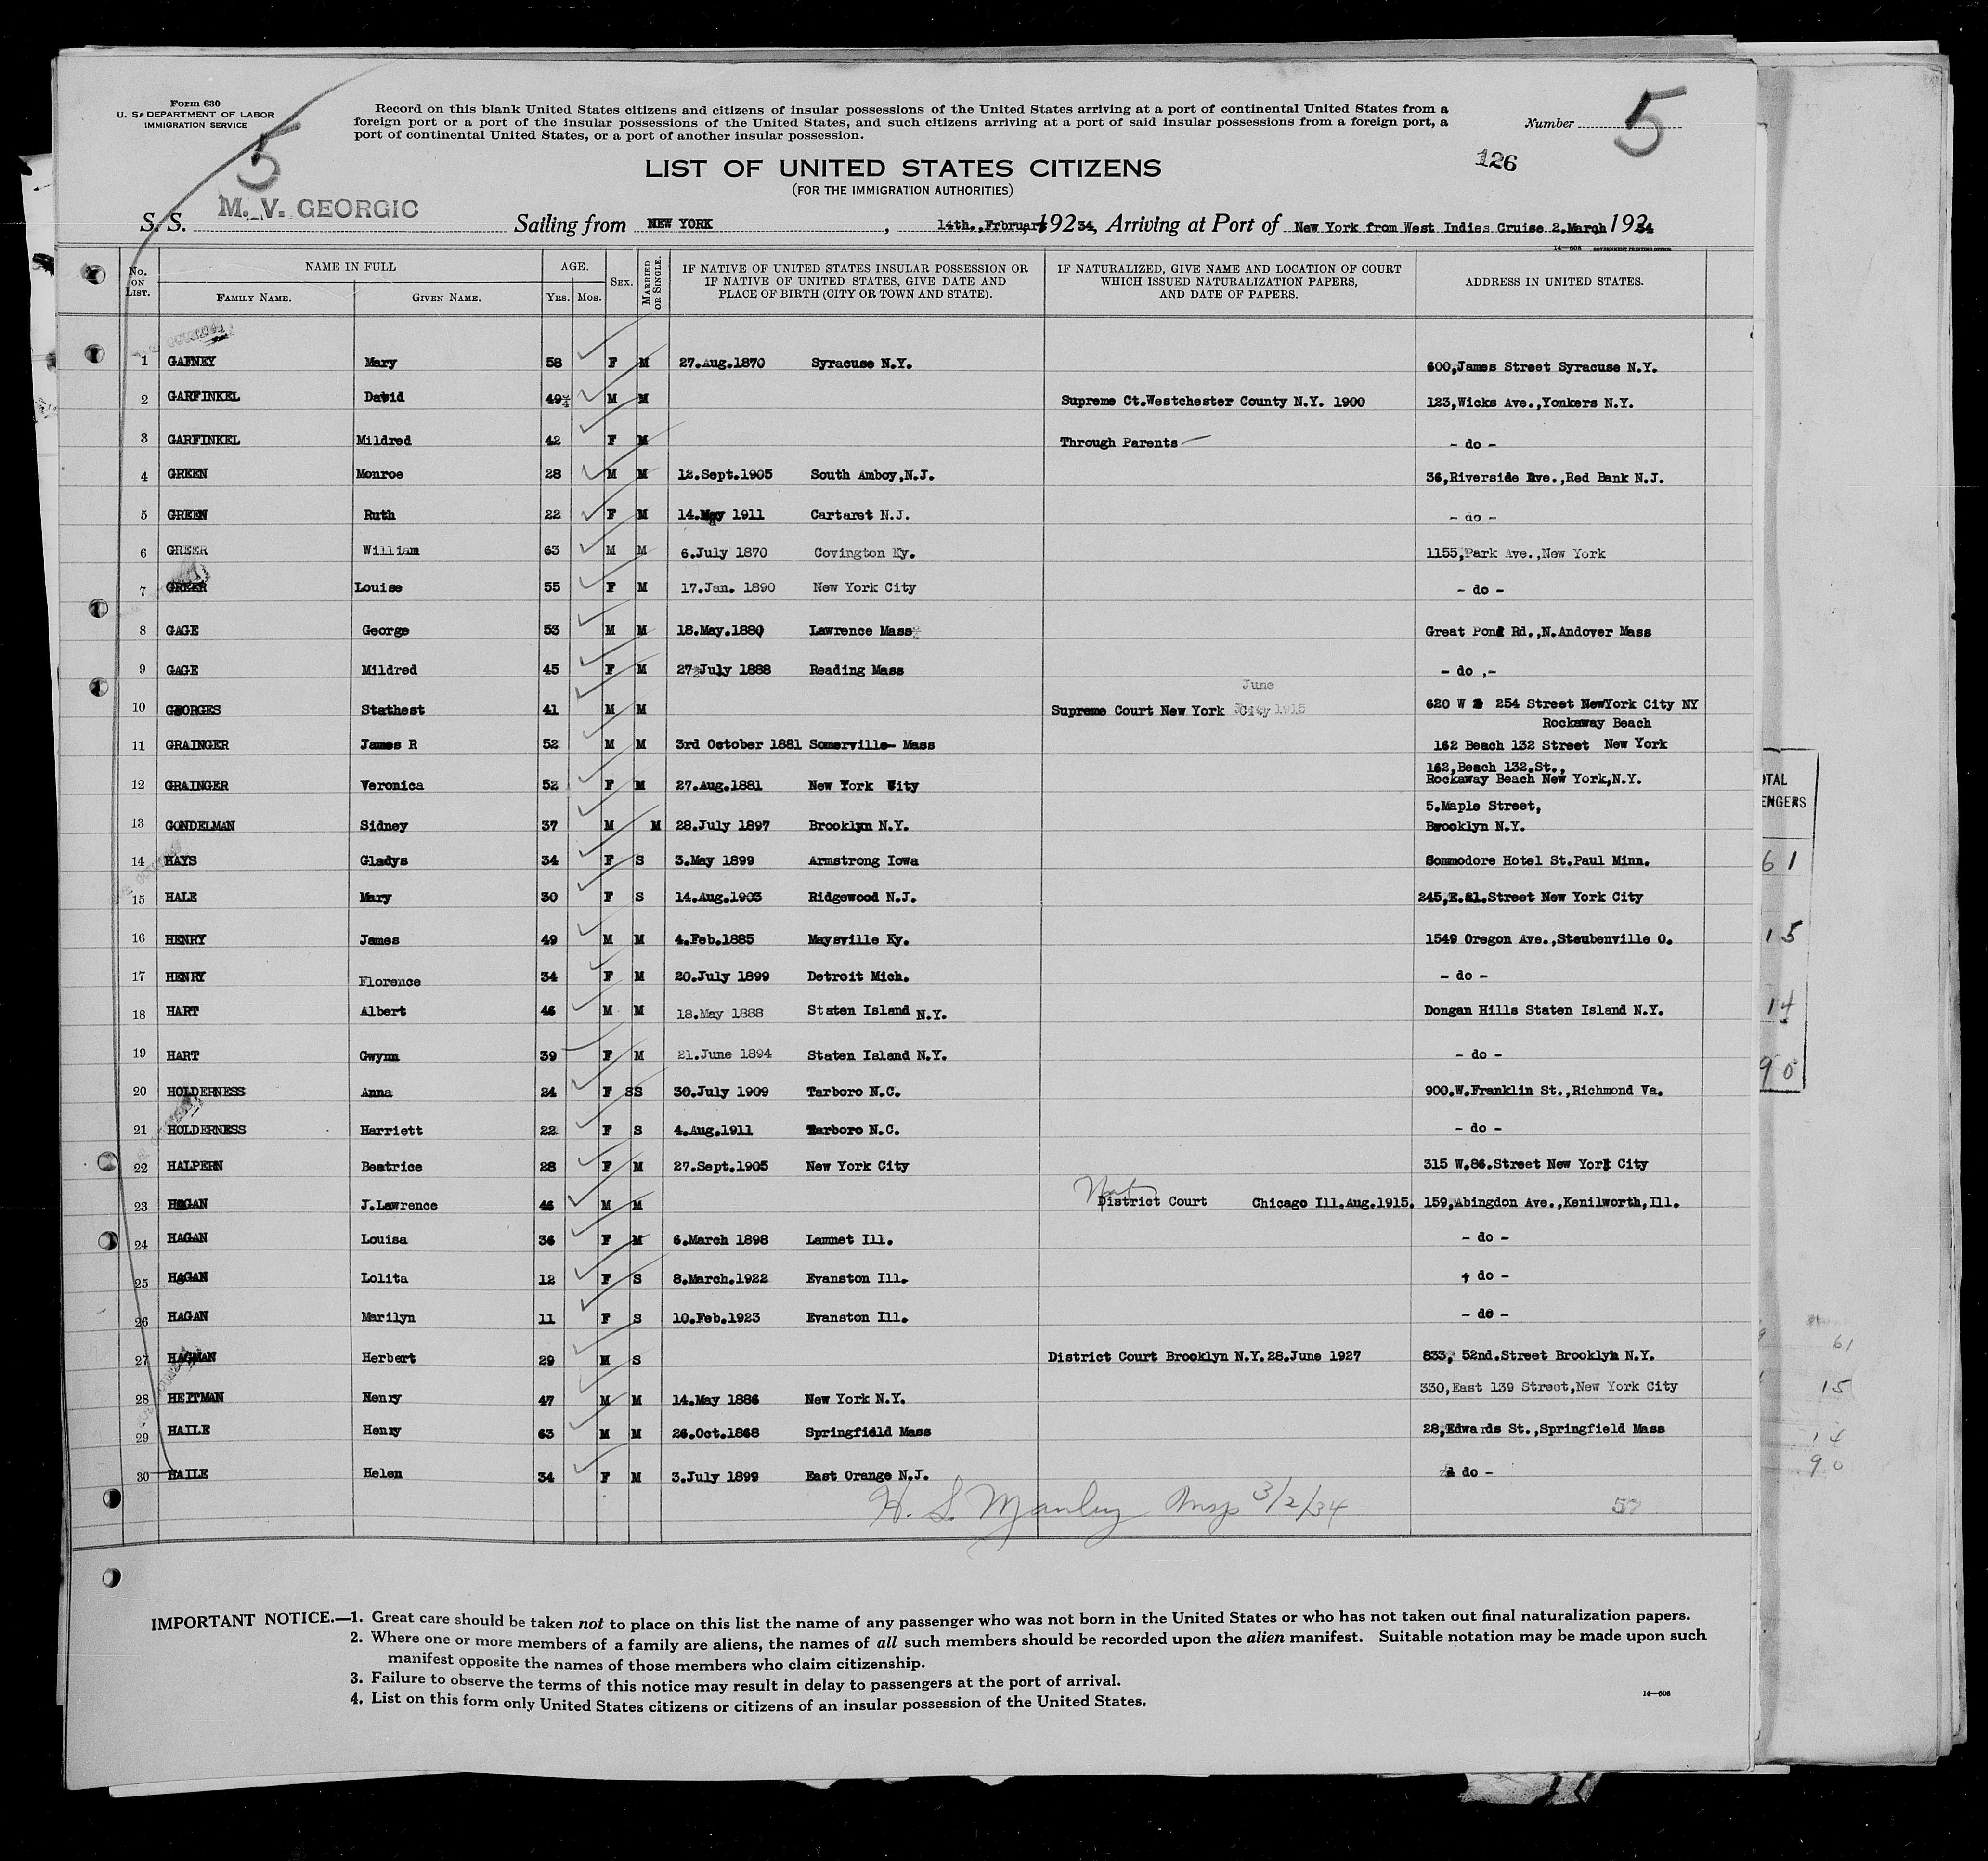 Form 630
U. S. DEPARTMENT OF LABOR
IMMIGRATION SERVICE
Record on this blank United States citizens and citizens of insular possessions of the United States arriving at a port of continental United States from a
foreign port or a port of the insular possessions of the United States, and such citizens arriving at a port of said insular possessions from a foreign port, a
port of continental United States, or a port of another insular possession.
Number 5
5
126
LIST OF UNITED STATES CITIZENS
(FOR THE IMMIGRATION AUTHORITIES)
S. S. M. V. GEORGIC Sailing from NEW YORK, 14th.,Frbruary 192 34, Arriving at Port of New York from West Indies Cruise 2.March 192 34
14—608 GOVERNMENT PRINTING OFFICE
No. ON LIST. NAME IN FULL FAMILY NAME. GIVEN NAME. AGE. YRS. MOS. SEX. MARRIED OR SINGLE. IF NATIVE OF UNITED STATES INSULAR POSSESSION OR IF NATIVE OF UNITED STATES, GIVE DATE AND PLACE OF BIRTH (CITY OR TOWN AND STATE). IF NATURALIZED, GIVE NAME AND LOCATION OF COURT WHICH ISSUED NATURALIZATION PAPERS, AND DATE OF PAPERS. ADDRESS IN UNITED STATES.
1 GAFNEY Mary 58 F M 27.Aug.1870 Syracuse N.Y. 600,James Street Syracuse N.Y.
2 GARFINKEL David 49 M M Supreme Ct.Westchester County N.Y. 1900 123,Wicks Ave.,Yonkers N.Y.
3 GARFINKEL Mildred 42 F M Through Parents - do -
4 GREEN Monroe 28 M M 12.Sept.1905 South Amboy,N.J. 36,Riverside Ave.,Red Bank N.J.
5 GREEN Ruth 22 F M 14.May 1911 Cartaret N.J. - do -
6 GREER William 63 M M 6.July 1870 Covington Ky. 1155,Park Ave.,New York
7 GREER Louise 55 F M 17.Jan. 1890 New York City - do -
8 GAGE George 53 M M 18.May.1880 Lawrence Mass Great Pond Rd.,N.Andover Mass
9 GAGE Mildred 45 F M 27 July 1888 Reading Mass - do ,-
10 GEORGES Stathest 41 M M Supreme Court New York City June 1915 620 W 254 Street NewYork City NY
11 GRAINGER James R 52 M M 3rd October 1881 Somerville- Mass Rockaway Beach
162 Beach 132 Street New York
12 GRAINGER Veronica 52 F M 27.Aug.1881 New York City 162,Beach 132.St.,
Rockaway Beach New York,N.Y.
13 GONDELMAN Sidney 37 M M 28.July 1897 Brooklyn N.Y. 5.Maple Street,
Brooklyn N.Y.
14 HAYS Gladys 34 F S 3.May 1899 Armstrong Iowa Commodore Hotel St.Paul Minn.
15 HALE Mary 30 F S 14.Aug.1903 Ridgewood N.J. 245,E.21.Street New York City
16 HENRY James 49 M M 4.Feb.1885 Maysville Ky. 1549 Oregon Ave.,Steubenville O.
17 HENRY Florence 34 F M 20.July 1899 Detroit Mich. - do -
18 HART Albert 46 M M 18.May 1888 Staten Island N.Y. Dongan Hills Staten Island N.Y.
19 HART Gwynn 39 F M 21.June 1894 Staten Island N.Y. - do -
20 HOLDERNESS Anna 24 F SS 30.July 1909 Tarboro N.C. 900.W.Franklin St.,Richmond Va.
21 HOLDERNESS Harriett 22 F S 4.Aug.1911 Tarboro N.C. - do -
22 HALPERN Beatrice 28 F M 27.Sept.1905 New York City 315 W.86.Street New York City
23 HAGAN J.Lawrence 46 M M District Court Chicago Ill.Aug.1915. 159,Abingdon Ave.,Kenilworth,Ill.
24 HAGAN Louisa 36 F M 6.March 1898 Lammet Ill. - do -
25 HAGAN Lolita 12 F S 8.March.1922 Evanston Ill. do -
26 HAGAN Marilyn 11 F S 10.Feb.1923 Evanston Ill. - do -
27 HAGMAN Herbert 29 M S District Court Brooklyn N.Y.28.June 1927 833, 52nd.Street Brooklyn N.Y.
28 HEITMAN Henry 47 M M 14.May 1886 New York N.Y. 330,East 139 Street,New York City
29 HAILE Henry 63 M M 26.Oct.1868 Springfield Mass 28,Edwards St.,Springfield Mass
30 HAILE Helen 34 F M 3.July 1899 East Orange N.J. do -
H. S. Manley Insp 3/2/34
57
IMPORTANT NOTICE.—1. Great care should be taken not to place on this list the name of any passenger who was not born in the United States or who has not taken out final naturalization papers.
2. Where one or more members of a family are aliens, the names of all such members should be recorded upon the alien manifest. Suitable notation may be made upon such
manifest opposite the names of those members who claim citizenship.
3. Failure to observe the terms of this notice may result in delay to passengers at the port of arrival.
4. List on this form only United States citizens or citizens of an insular possession of the United States.
14—608
OTAL
ENGERS
61
15
14
90
61
15
14
90